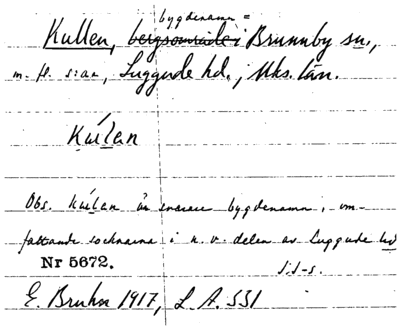 bygdenamn =
Kullen, bergsområde i Brunnby sn.,
m. fl. s:ar, Luggude hd., Mks. län.
Kúlan
Obs. Kúlan är snarare bygdenamn, om-
fattande socknarna i n. v. delen av Luggude hd
Nr 5672.
E. Bruhn 1917, L. A. 531